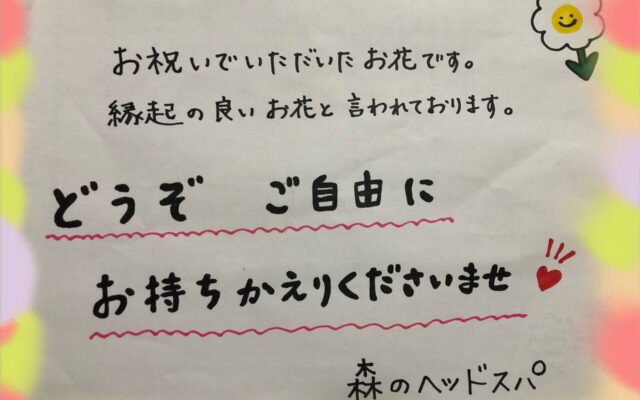 お祝いでいただいたお花です。
縁起の良いお花と言われております。
どうぞ ご自由に
お持ちかえりくださいませ
森のヘッドスパ